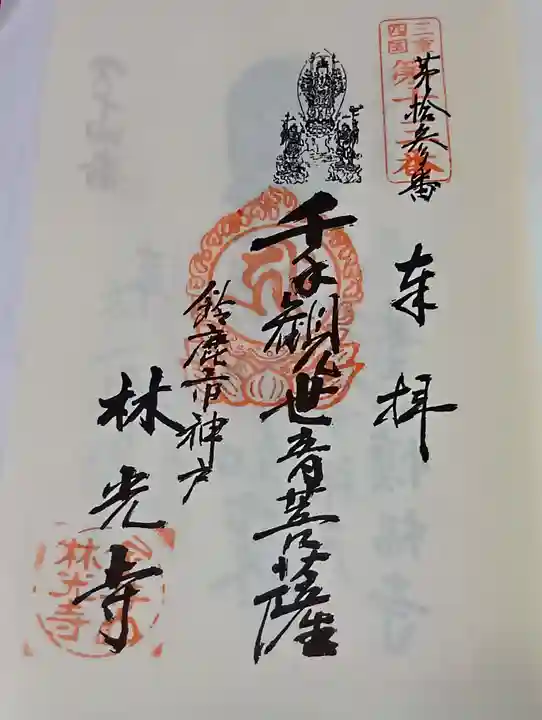 三重
四国
第十三番
第拾参番
奉拝
千手観世音菩薩
鈴鹿市神戸
林光寺
林光寺